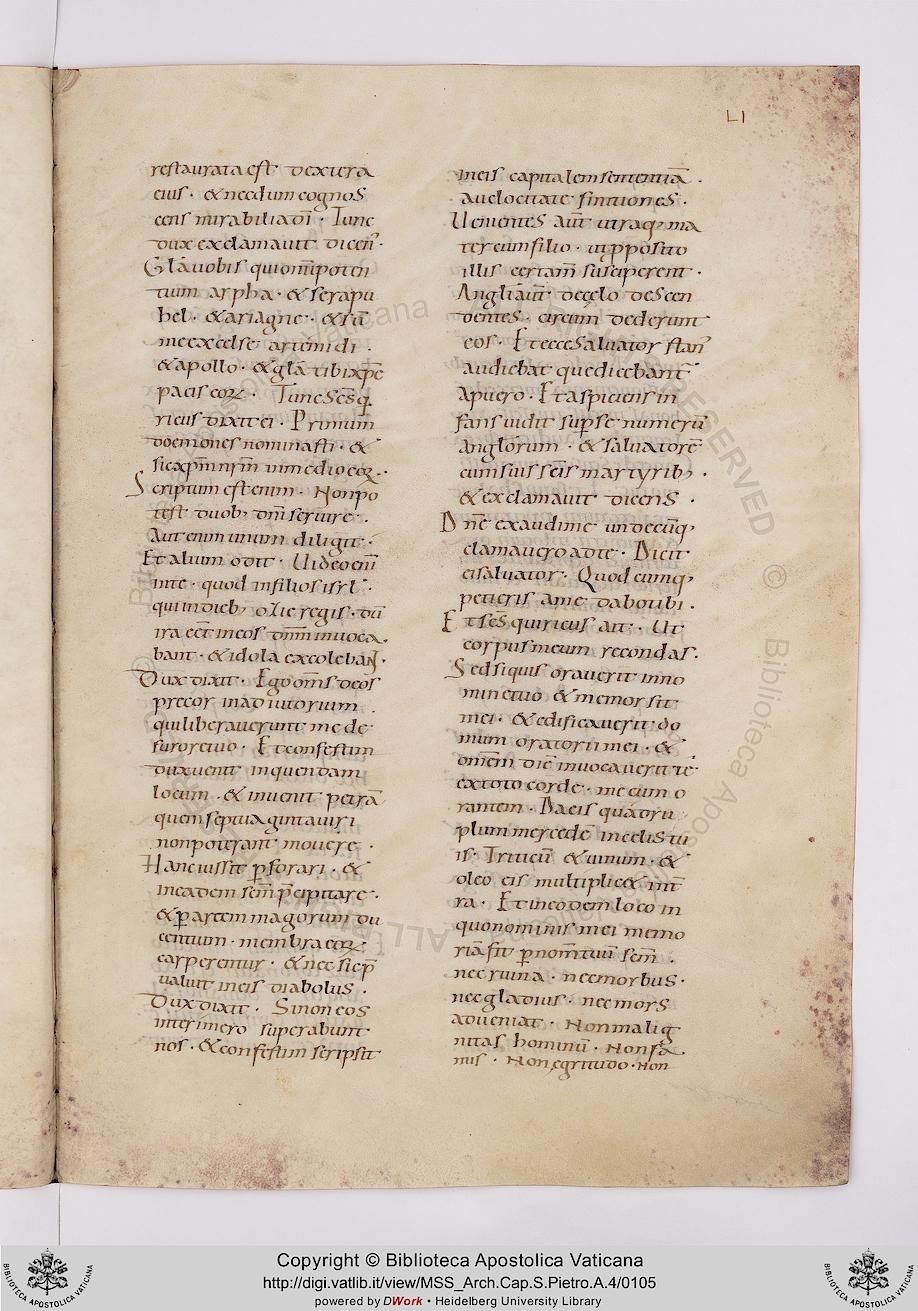 LI
restaurata est dextera
eius · & necdum cognos
cens mirabilia dī · Tunc
dux exclamauit dicen̄ ·
Glā uobis qui om̄ipoten
tium arpha · & serapu
hel · & ariagne · & rū
me excelse artemidi ·
& apollo · & glā tibi xp̄e
pacis eoꝝ · Tunc sc̄s q
ricus dixit ei · Primum
doemones nominasti · &
sic xp̄m nr̄m in medio eoꝝ ·
Scriptum est enim · Non po
test duob; dn̄i seruire ·
Aut enim unum diligit ·
Et alium odit · Uideo eni̅
in te · quod in filios isrl̄ ·
qui in dieb; olie regis · dū
ira eēt in eos dn̄m inuoca
bant · & idola excoleban̄ ·
Dux dixit · Ego om̄s deos
precor in adiutorium ·
qui liberauerunt me de
furore tuo · Et confestim
dux uenit in quendam
locum · & inuenit petrā
quem septuaginta uiri
non poterant mouere ·
Hanc iussit pforari · &
in eadem sem̄ p̄cipitare ·
& p artem magorum du
centum · membra eoꝝ
carperentur · & nec sic p̄
ualuit in eis diabolus ·
Dux dixit · Si non eos
interimero superabunt
nos · & confestim scripsit
in eis capitalem sententiā ·
a uelocitate finitiones ·
Uenientes aūt utraq; ma
ter cum filio · ut p̄posito
illis certam̄ susciperent ·
Angli aūt de celo descen
dentes · circum dederunt
eos · Et ecce saluator stan̄
audiebat que dicebant
a puero · Et aspiciens in
fans uidit sup se numerū
anglorum · & saluatorē
cum suis sc̄is martyrib; ·
& exclamauit dicens ·
Dn̄e exaudi me undecūq;
clamauero ad te · Dicit
ei saluator · Quodcumq;
petieris a me dabo tibi ·
Et sc̄s quiricus ait · Ut
corpus meum recondas ·
Sed siquis orauerit in no
mine tuo & memor sit
mei · & edificauerit do
mum oratorii mei · &
om̄em diē inuocauerit te
ex toto corde · mecum o
rantem · Da eis quadru
plum mercedē in celis tu
is · Triticū & uinum · &
oleo eis multiplic& in t̄
ra · Et in eodem loco in
quo nominis mei memo
riā fit p nom̄ tuū sem̄ ·
nec ruina · nec morbus ·
nec gladius · nec mors
adueniat · Non malig
nitas hominū · Non fa
mis · Non egritudo · Non
Copyright © Biblioteca Apostolica Vaticana
http://digi.vatlib.it/view/MSS_Arch.Cap.S.Pietro.A.4/0105
powered by DWork • Heidelberg University Library